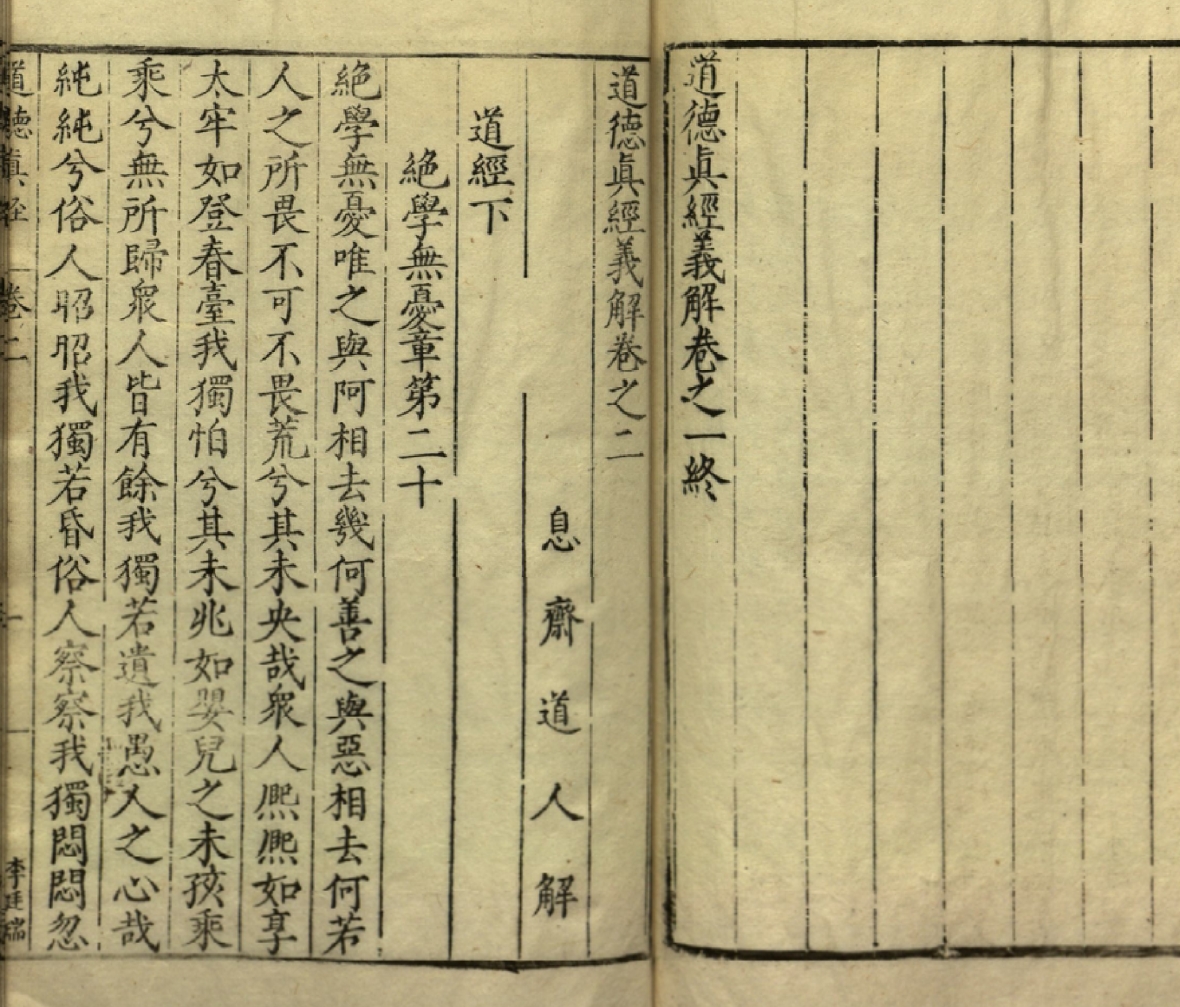 道德眞經義解卷之一終
道德眞經義解卷之二
息齋道人解
道經下
絕學無憂章第二十
絕學無憂唯之與阿相去幾何善之與惡相去何若
人之所畏不可不畏荒兮其未央哉衆人熈熈如享
太牢如登春臺我獨怕兮其未兆如嬰兒之未孩乘
乘兮無所歸衆人皆有餘我獨若遺我愚人之心哉
純純兮俗人昭昭我獨若昏俗人察察我獨悶悶忽
道德眞經 卷二
一
李廷瑞